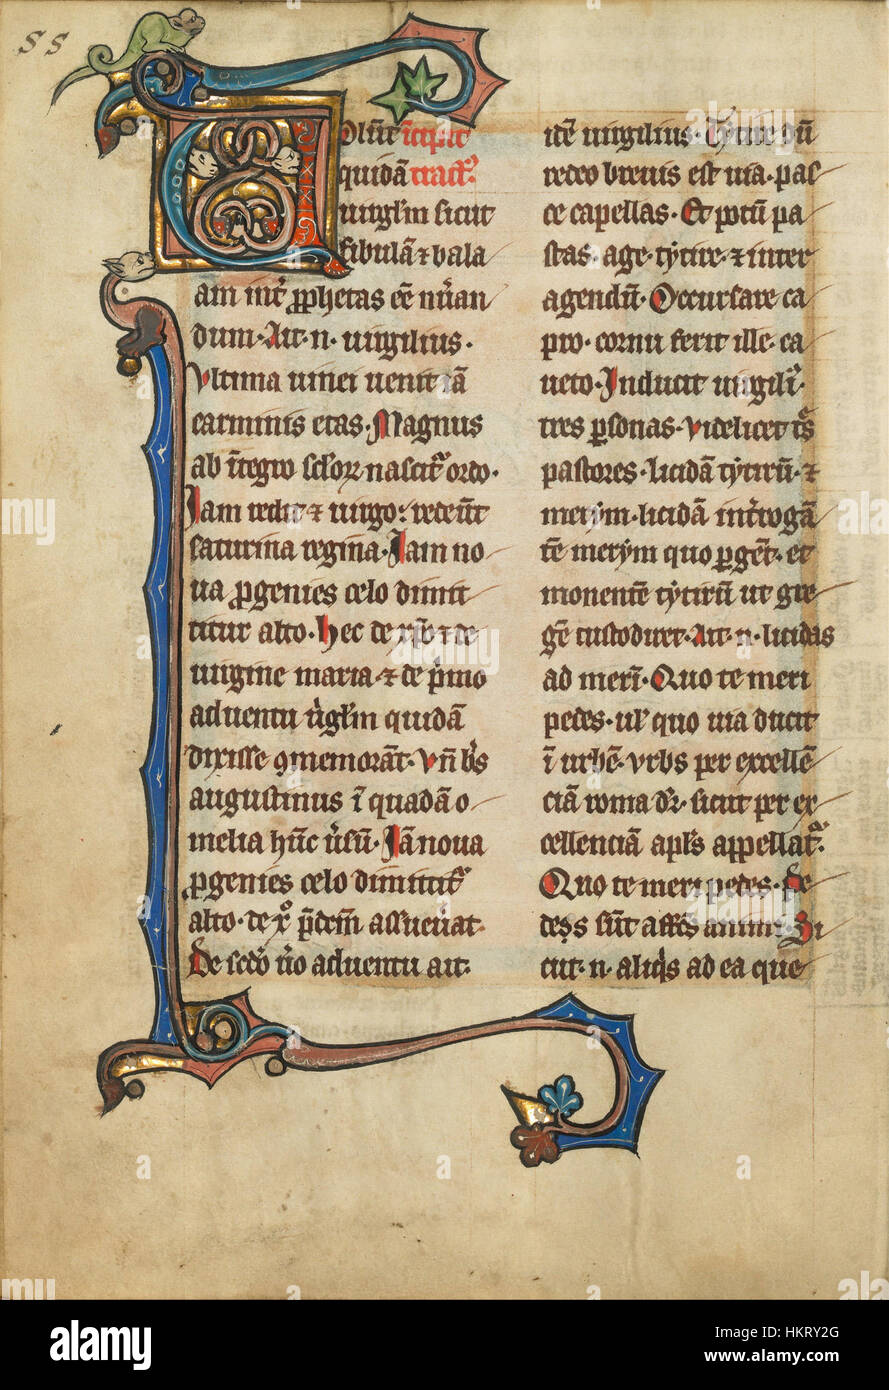 SS
Uolūt īcipit
quidā tractꝰ.
uirgłm sicut
sibulā ⁊ bala
am int̄ ꝓphetas eē nūan
dum. Ait. n. uirgilius.
Vltima cumei uenit iā
carminis etas. Magnus
ab ītegro scloꝝ nascit᷑ ordo.
Iam redit ⁊ uirgo: redeūt
saturnia regina. Iam no
ua ꝓgenies celo dimit
titur alto. hec de xp̄o ⁊ de
uirgine maria ⁊ de p̄mo
aduentu uirgłm quidā
dixisse ꝯmemorāt. Vn̄ bt̄s
augustinus ī quadā o
melia hūc ūsū. Iā noua
ꝓgenies celo dimittit᷑
alto. de xp̄o p̄dcm̄ asseuerat.
De scd̄o ūo aduentu ait.
itē uirgilius. Tytire dū
redeo breuis est uia. pas
ce capellas. Et potū pa
stas. age. tytire. ⁊ inter
agendū. Occursare ca
pro. cornu ferit ille. ca
ueto. Inducit uirgiliꝰ.
tres ꝑsonas. Videlicet tᷓs
pastores. licidā tytirū. ⁊
merym. licidā int̄rogā
tē merȳm quo ꝑgeret. et
monentē tytirū ut gre
gē custodiret. Ait. n. licidas
ad merī. Quo te meri
pedes. ul̄ quo uia ducit
ī urbē. Vrbs per excellē
ciā roma dr̄. sicut per ex
cellenciā apl̄s appellat᷑.
Quo te meri pedes. Pe
des sūt affc̄s animi. Si
cut. n. aliq̄s ad ea que
alamy
Image ID: HKRY2G
www.alamy.com